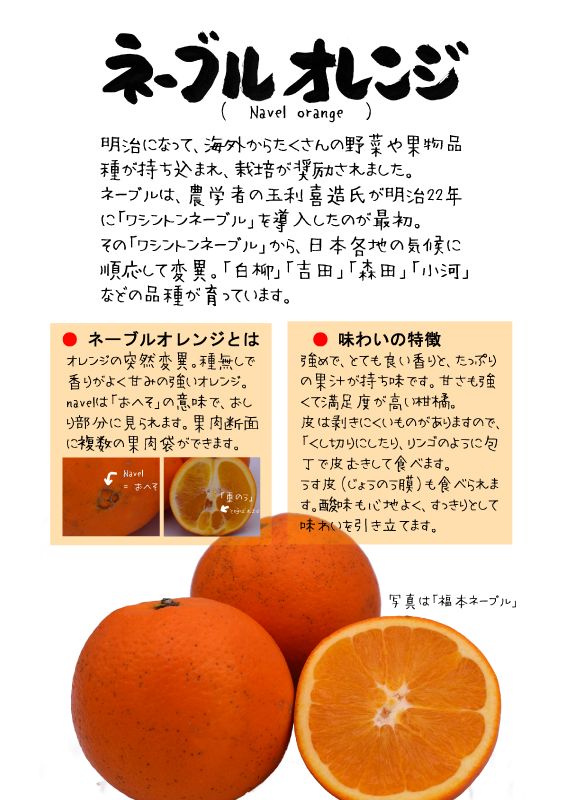 ネーブルオレンジ
( Navel orange )
明治になって、海外からたくさんの野菜や果物品
種が持ち込まれ、栽培が奨励されました。
ネーブルは、農学者の玉利喜造氏が明治22年
に「ワシントンネーブル」を導入したのが最初。
その「ワシントンネーブル」から、日本各地の気候に
順応して変異。「白柳」「吉田」「森田」「小河」
などの品種が育っています。
● ネーブルオレンジとは
オレンジの突然変異。種無しで
香りがよく甘みの強いオレンジ。
navelは「おへそ」の意味で、おし
り部分に見られます。果肉断面
に複数の果肉袋ができます。
Navel
= おへそ
● 味わいの特徴
強めで、とても良い香りと、たっぷり
の果汁が持ち味です。甘さも強
くて満足度が高い柑橘。
皮は剥きにくいものがありますので、
「くし切りにしたり、リンゴのように包
丁で皮むきして食べます。
うす皮(じょうのう膜)も食べられま
す。酸味も心地よく、すっきりとして
味わいを引き立てます。
写真は「福本ネーブル」